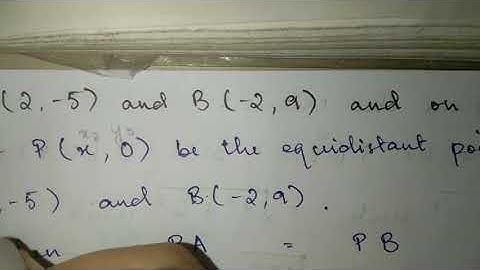 (2, -5) and B (-2, 9) and on
P (x, 0) be the equidistant poi
x₂ y₂
, -5) and B (-2, 9).
PA = PB